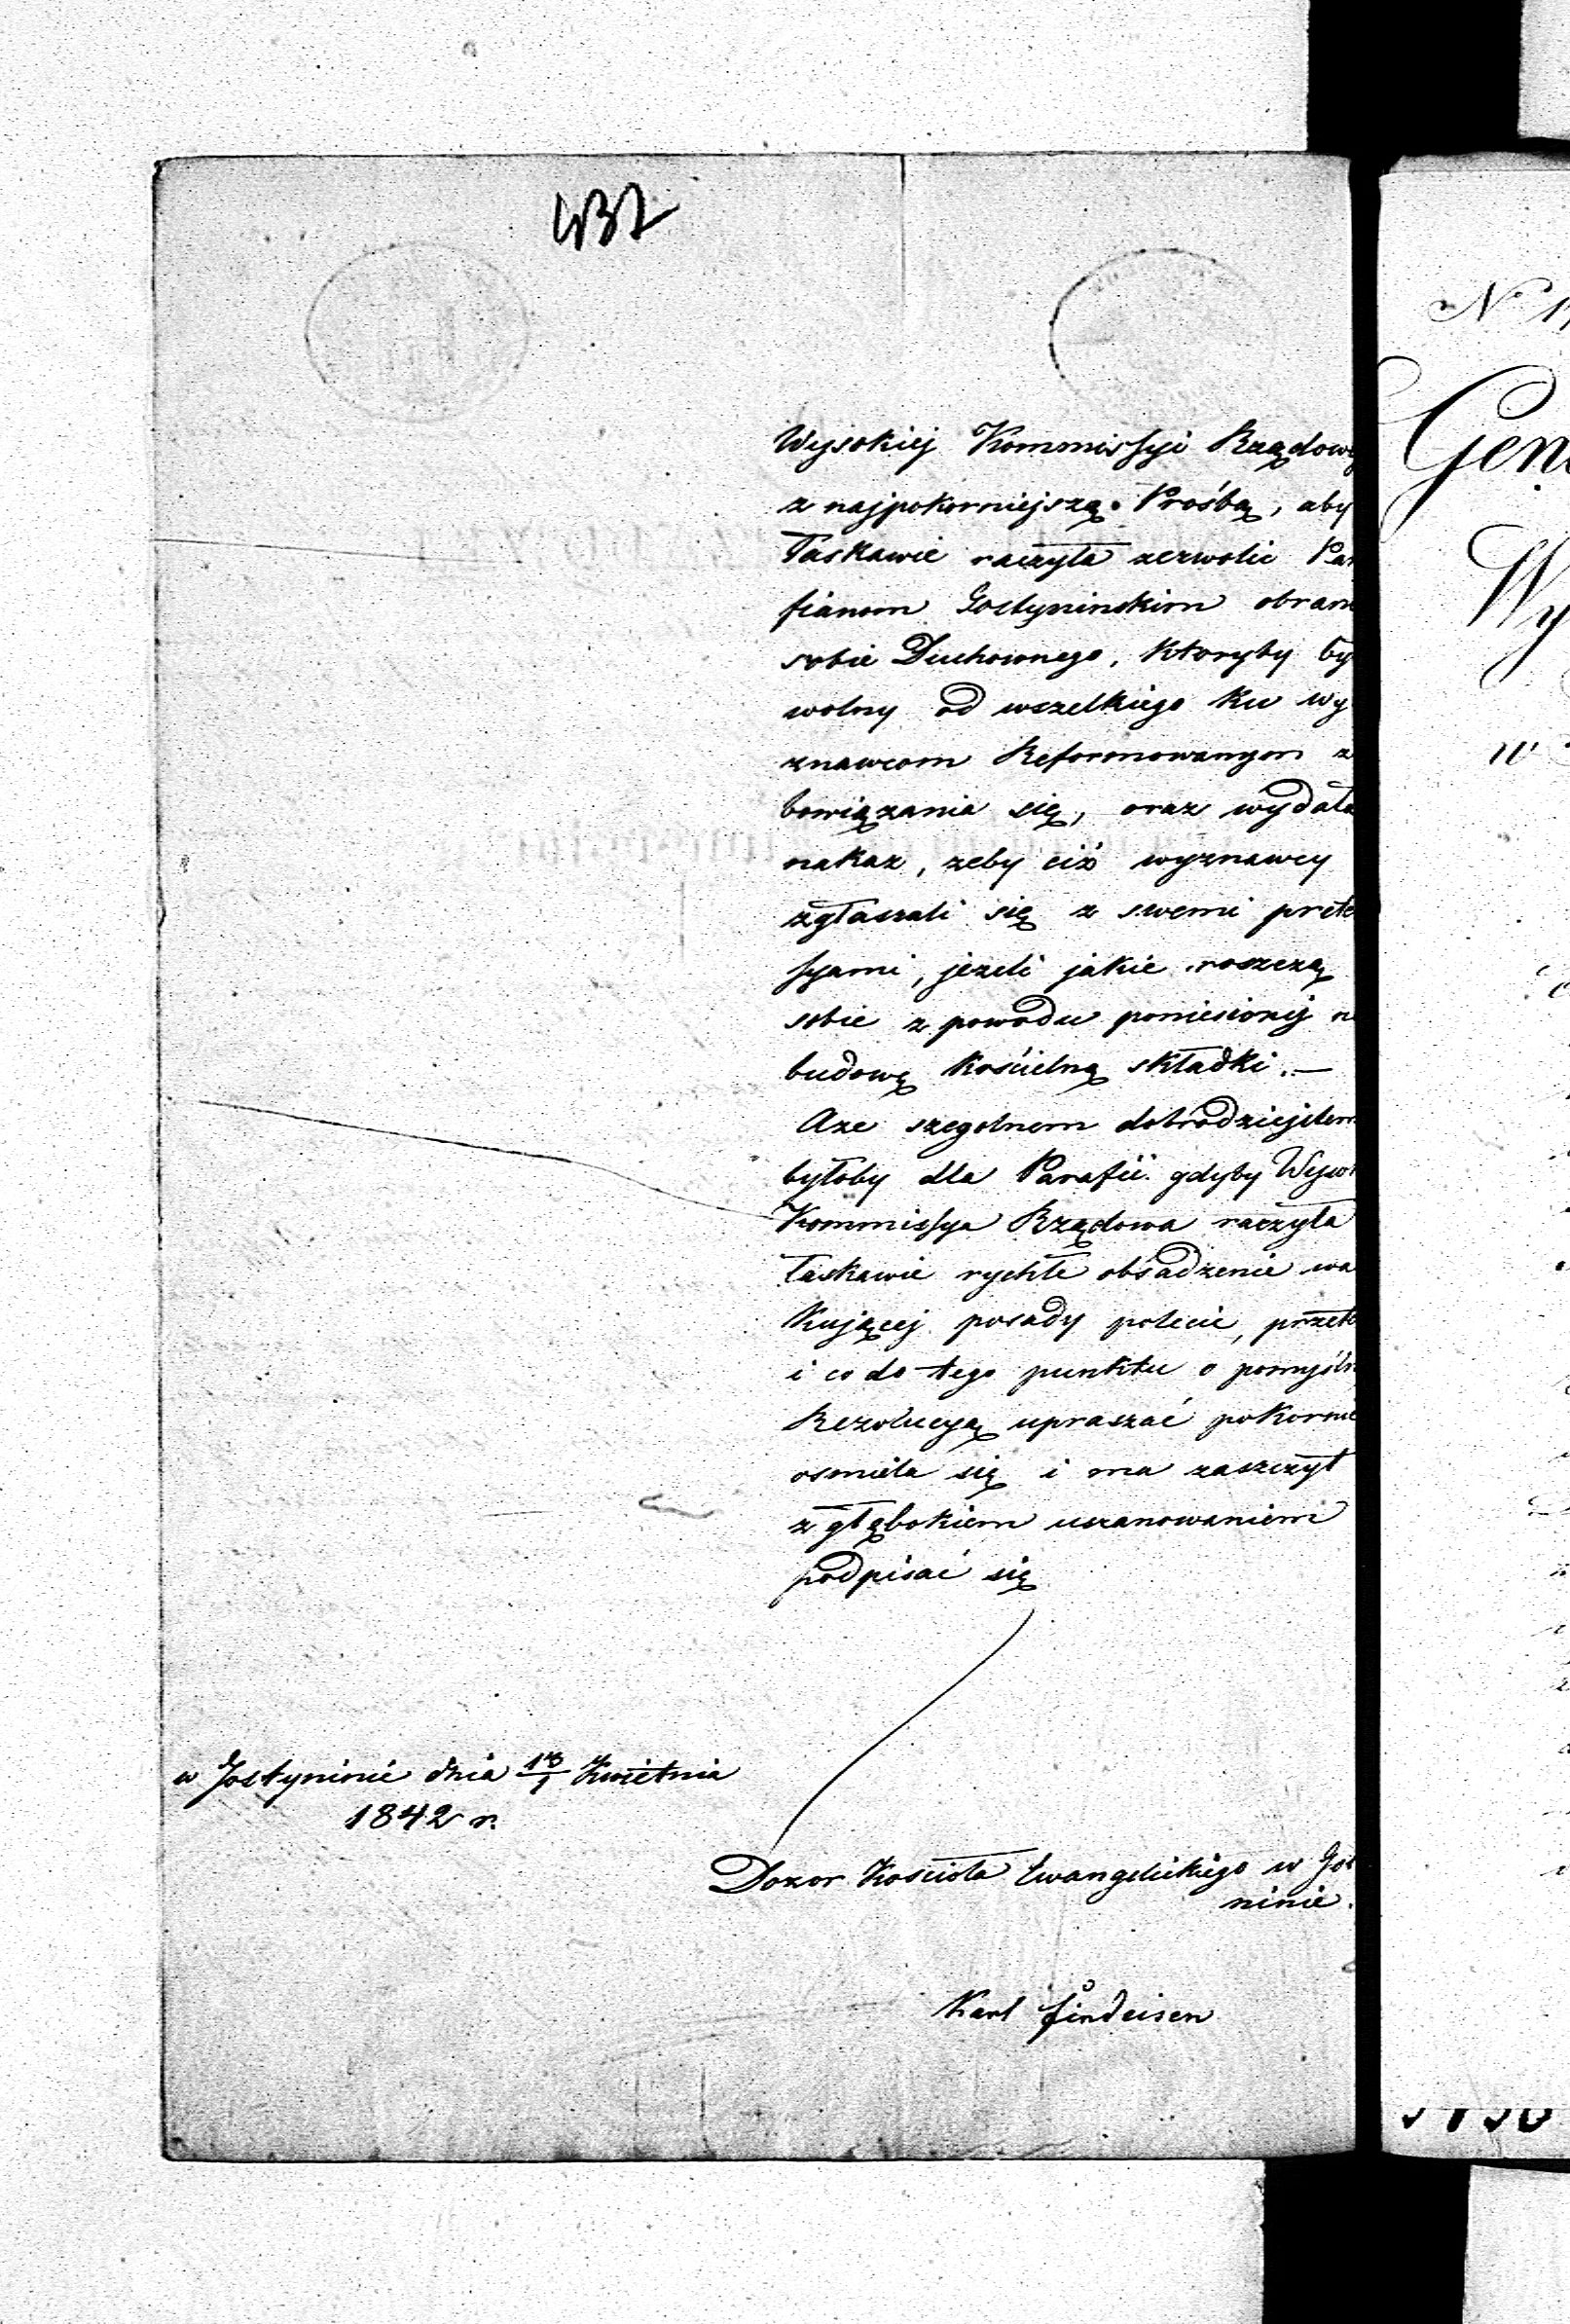 432
Wysokiej Kommissyi Rządowej
z najpokorniejszą Prośbą, aby
łaskawie raczyła zezwolić Par
fianom Gostyninskim obran
sobie Duchownego, ktoryby by
wolny od wszelkiego ku wy
znawcom Reformowanym z
bowiązania się, oraz wydała
nakaz, żeby ciż wyznawcy
zgłaszali się z swemi prete
syami, jeżeli jakie roszczą
sobie z powodu poniesionej n
budowę kościelną składki. —
Aże szegolnem dobrodziejstem
byłoby dla Parafii gdyby Wysok
Kommissya Rządowa raczyła
łaskawie rychłe obsadzenie wa
kującej posady polecić, przeto
i co do tego punktu o pomyśln
Rezolucyą upraszać pokornie
osmiela się i ma zaszczyt
z głębokiem uszanowaniem
podpisać się
w Gostyninie dnia 13/1 Kwietnia
1842 r.
Dozor Kościoła Ewangelickiego w Gos
ninie.
Karl Findeisen
N 1
Gen
Wy
w